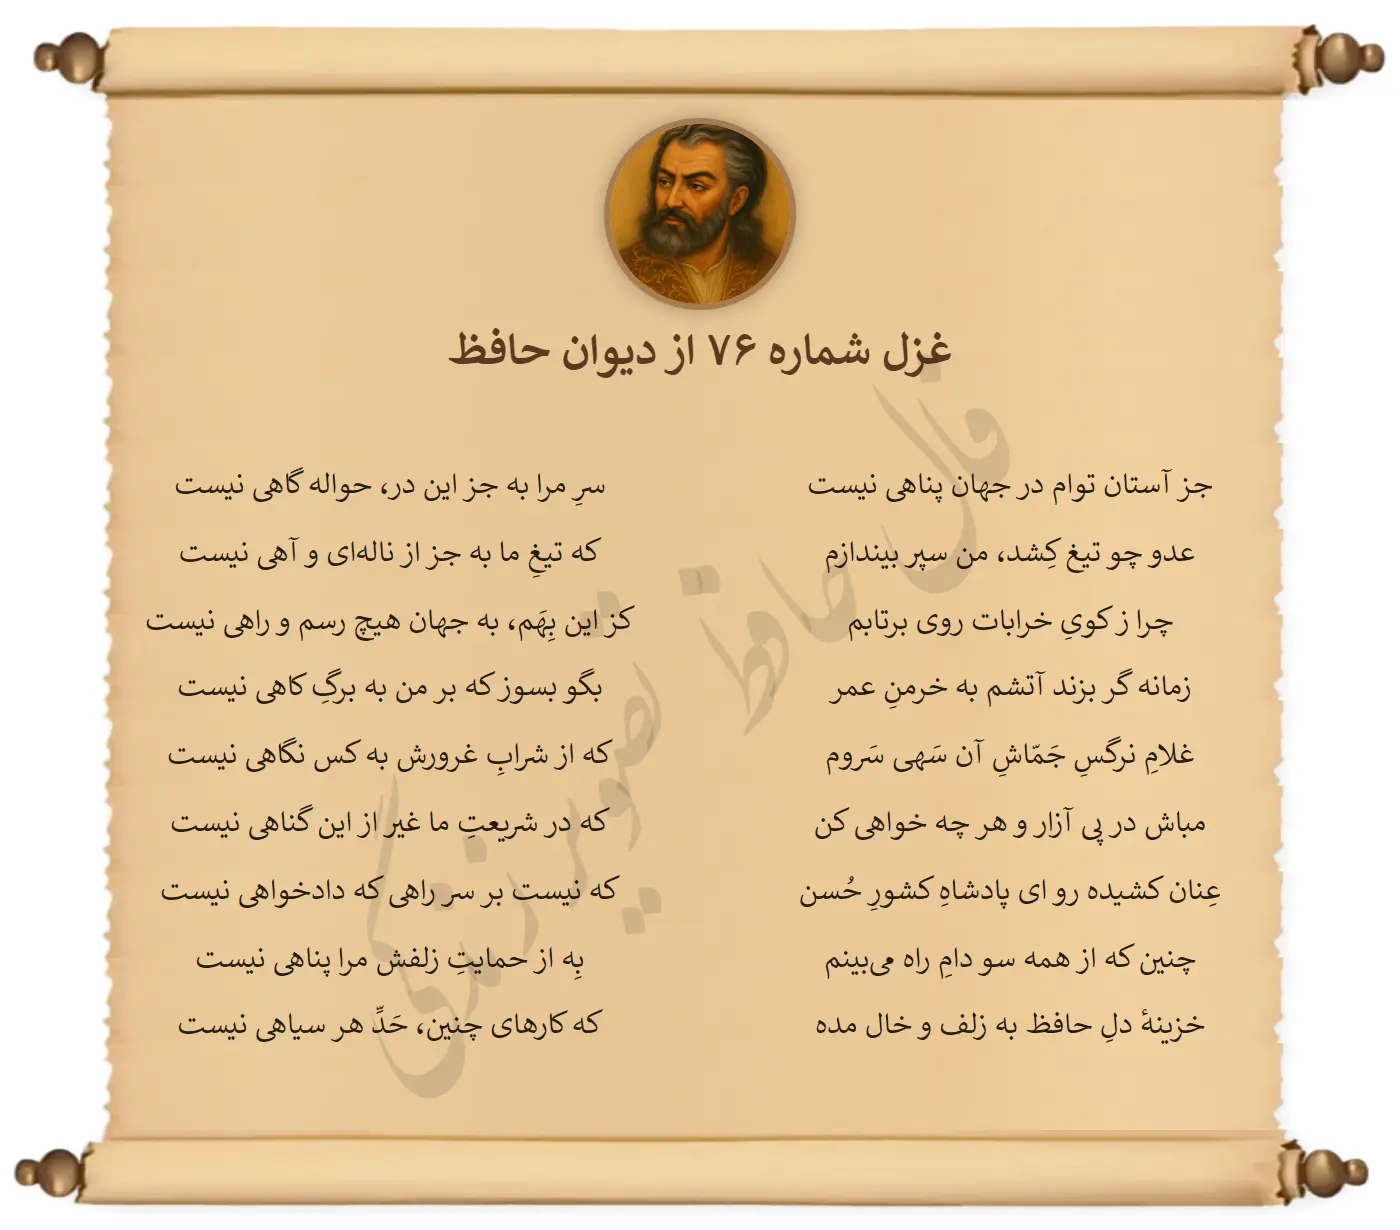 غزل شماره ۷۶ از دیوان حافظ
جز آستان توام در جهان پناهی نیست
سرِ مرا به جز این در، حواله گاهی نیست
عدو چو تیغ کِشد، من سپر بیندازم
که تیغِ ما به جز از ناله‌ای و آهی نیست
چرا ز کویِ خرابات روی برتابم
کز این بِهَم، به جهان هیچ رسم و راهی نیست
زمانه گر بزند آتشم به خرمنِ عمر
بگو بسوز که بر من به برگِ کاهی نیست
غلامِ نرگسِ جَمّاشِ آن سَهی سَروم
که از شرابِ غرورش به کس نگاهی نیست
مباش در پی آزار و هر چه خواهی کن
که در شریعتِ ما غیر از این گناهی نیست
عِنان کشیده رو ای پادشاهِ کشورِ حُسن
که نیست بر سر راهی که دادخواهی نیست
چنین که از همه سو دامِ راه می‌بینم
بِه از حمایتِ زلفش مرا پناهی نیست
خزینهٔ دلِ حافظ به زلف و خال مده
که کارهای چنین، حَدِّ هر سیاهی نیست
فال حافظ تصویر زندگی